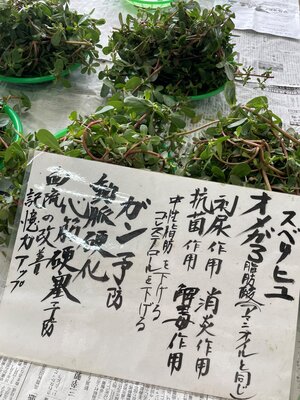 スベリヒユ
オメガ3脂肪酸(アマニオイルと同じ)
利尿作用 消炎作用
抗菌作用 解毒作用
中性脂肪を下げる
コレステロールを下げる
ガン予防
動脈硬化
心筋硬塞予防
血流の改善
記憶力アップ